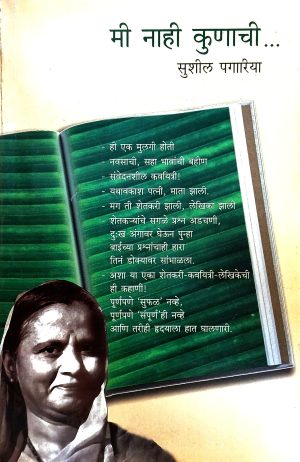 मी नाही कुणाची...
सुशील पगारिया
- ही एक मुलगी होती
- नवसाची, सहा भावांची बहीण
- संवेदनशील कवयित्री!
- यथावकाश पत्नी, माता झाली.
- मग ती शेतकरी झाली, लेखिका झाली
शेतकऱ्यांचे सगळे प्रश्न अडचणी,
दुःख अंगावर घेऊन पुन्हा
बाईच्या प्रश्नांचाही हारा
तिनं डोक्यावर सांभाळला.
- अशा या एका शेतकरी-कवयित्री-लेखिकेची
ही कहाणी!
पूर्णपणे 'सुफळ' नव्हे,
पूर्णपणे 'संपूर्ण'ही नव्हे
आणि तरीही हृदयाला हात घालणारी.